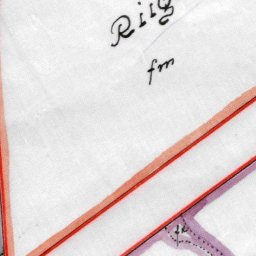 Riig
fm